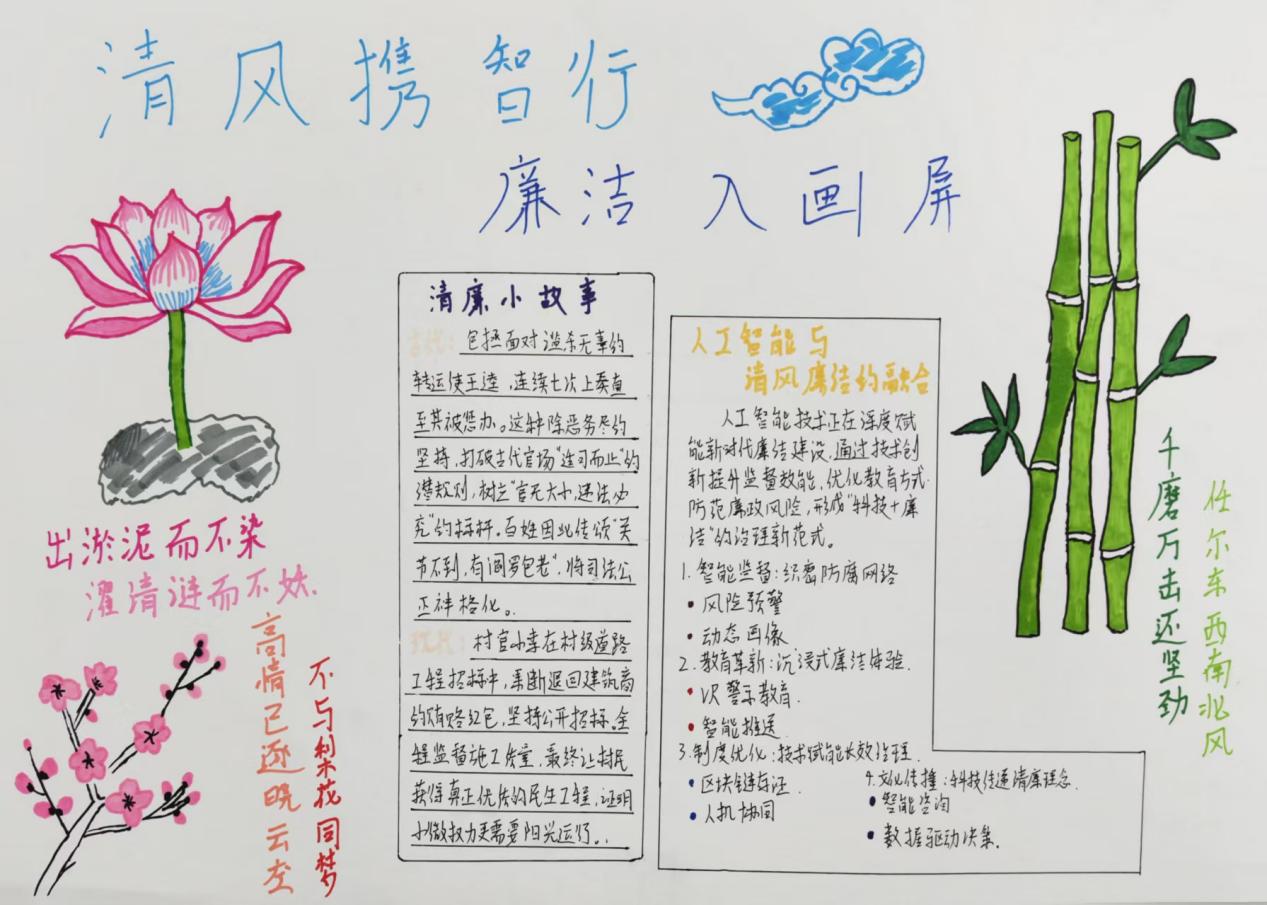 清风携智行
廉洁入画屏
清廉小故事
古代：包拯面对滥杀无辜的
转运使王逵，连续七次上奏直
至其被惩办。这种除恶务尽的
坚持，打破古代官场“适可而止”的
潜规则，树立“官无大小，违法必
究”的标杆。百姓因此传颂“关
节不到，有阎罗包老”，将司法公
正神格化。
现代：村官小李在村级道路
工程招标中，果断退回建筑商
的贿赂红包，坚持公开招标。全
程监督施工质量，最终让村民
获得真正优质的民生工程，证明
小微权力更需要阳光运行。
人工智能与
清风廉洁的融合
人工智能技术正在深度赋
能新时代廉洁建设，通过技术创
新提升监督效能，优化教育方式
防范廉政风险，形成“科技+廉
洁”的治理新范式。
1. 智能监督：织密防腐网络
• 风险预警
• 动态画像
2. 教育革新：沉浸式廉洁体验.
• VR警示教育.
• 智能推送
3. 制度优化：技术赋能长效治理.
• 区块链存证.
• 人机协同
4. 文化传播：科技传递清廉理念.
• 智能咨询
• 数据驱动决策.
出淤泥而不染
濯清涟而不妖.
高情已逐晓云空
不与梨花同梦
千磨万击还坚劲
任尔东西南北风